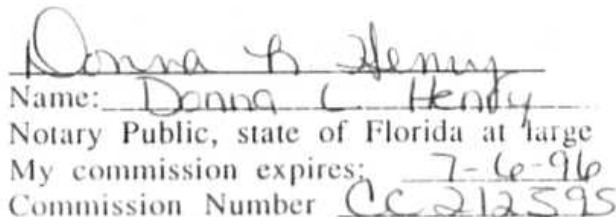 Donna L Henry
Name: Donna L Henry
Notary Public, state of Florida at large
My commission expires: 7-6-96
Commission Number CC212595